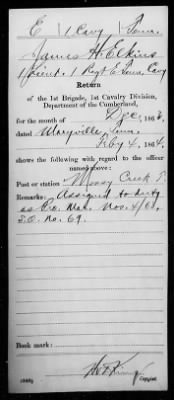 E 1 Cav. Tenn.
James H. Elkins
1 Lieut. 1 Regt E. Tenn. Cav
Return
of the 1st Brigade, 1st Cavalry Division,
Department of the Cumberland,
for the month of Dec, 1863.
dated Maryville, Tenn.
Feby 4, 1864.
shows the following with regard to the officer
named above:
Post or station Mossy Creek T.
Remarks: Assigned to duty
as Pro. Mar. Nov. 4/63,
S.O. No. 69.
Book mark:
Copyist.